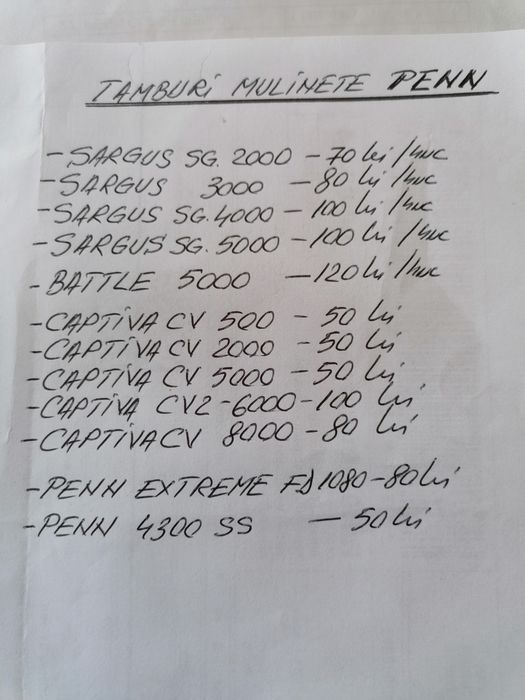 TAMBURI MULINETE PENN
- SARGUS SG. 2000 - 70 lei/buc
- SARGUS 3000 - 80 lei/buc
- SARGUS SG. 4000 - 100 lei/buc
- SARGUS SG. 5000 - 100 lei/buc
- BATTLE 5000 - 120 lei/buc
- CAPTIVA CV 500 - 50 lei
- CAPTIVA CV 2000 - 50 lei
- CAPTIVA CV 5000 - 50 lei
- CAPTIVA CV2 - 6000 - 100 lei
- CAPTIVA CV 8000 - 80 lei
- PENN EXTREME FD 1080 - 80 lei
- PENN 4300 SS - 50 lei